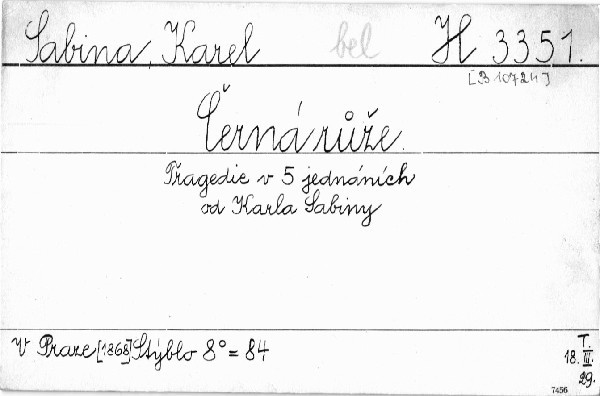 Sabina, Karel bel H 3351.
[B 10724]
Černá růže.
Tragedie v 5 jednáních
od Karla Sabiny
V Praze [1868] Stýblo 8° = 84
T.
18. III.
29.
7456